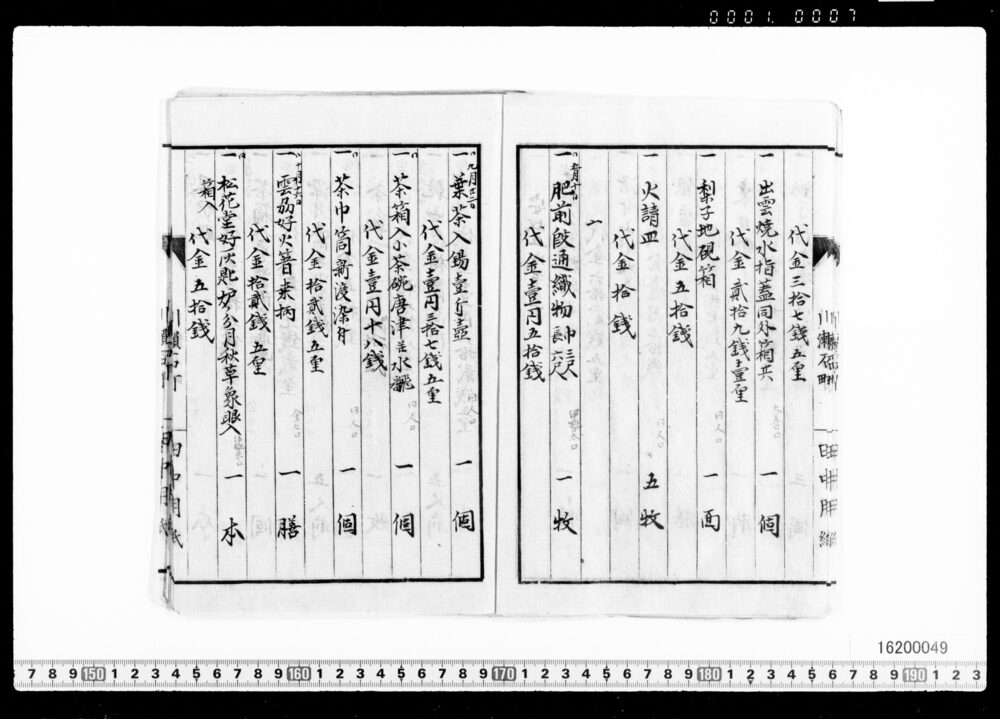 0001.0007
代金三拾七銭五厘
一 出雲焼水指蓋同外箱共 一個
代金貳拾九銭壹厘
一 梨子地硯箱 一面
代金五拾銭
一 火請皿 五枚
代金拾銭
一
一 肥前段通織物 巾三尺 長六尺 一枚
代金壹円五拾銭
一 葉茶入錫壹斤壺 一個
代金壹円三拾七銭五厘
一 茶箱入小茶碗唐津 水飜 一個
代金壹円十八銭
一 茶巾筒新渡染付 一個
代金拾貳銭五厘
十月十六日
一 雲州好火箸桑柄 一膳
代金拾貳銭五厘
一 松花堂好灰匙炉 月秋草象眼入 一本
箱入
代金五拾銭
16200049
7 8 9 150 1 2 3 4 5 6 7 8 9 160 1 2 3 4 5 6 7 8 9 170 1 2 3 4 5 6 7 8 9 180 1 2 3 4 5 6 7 8 9 190 1 2 3